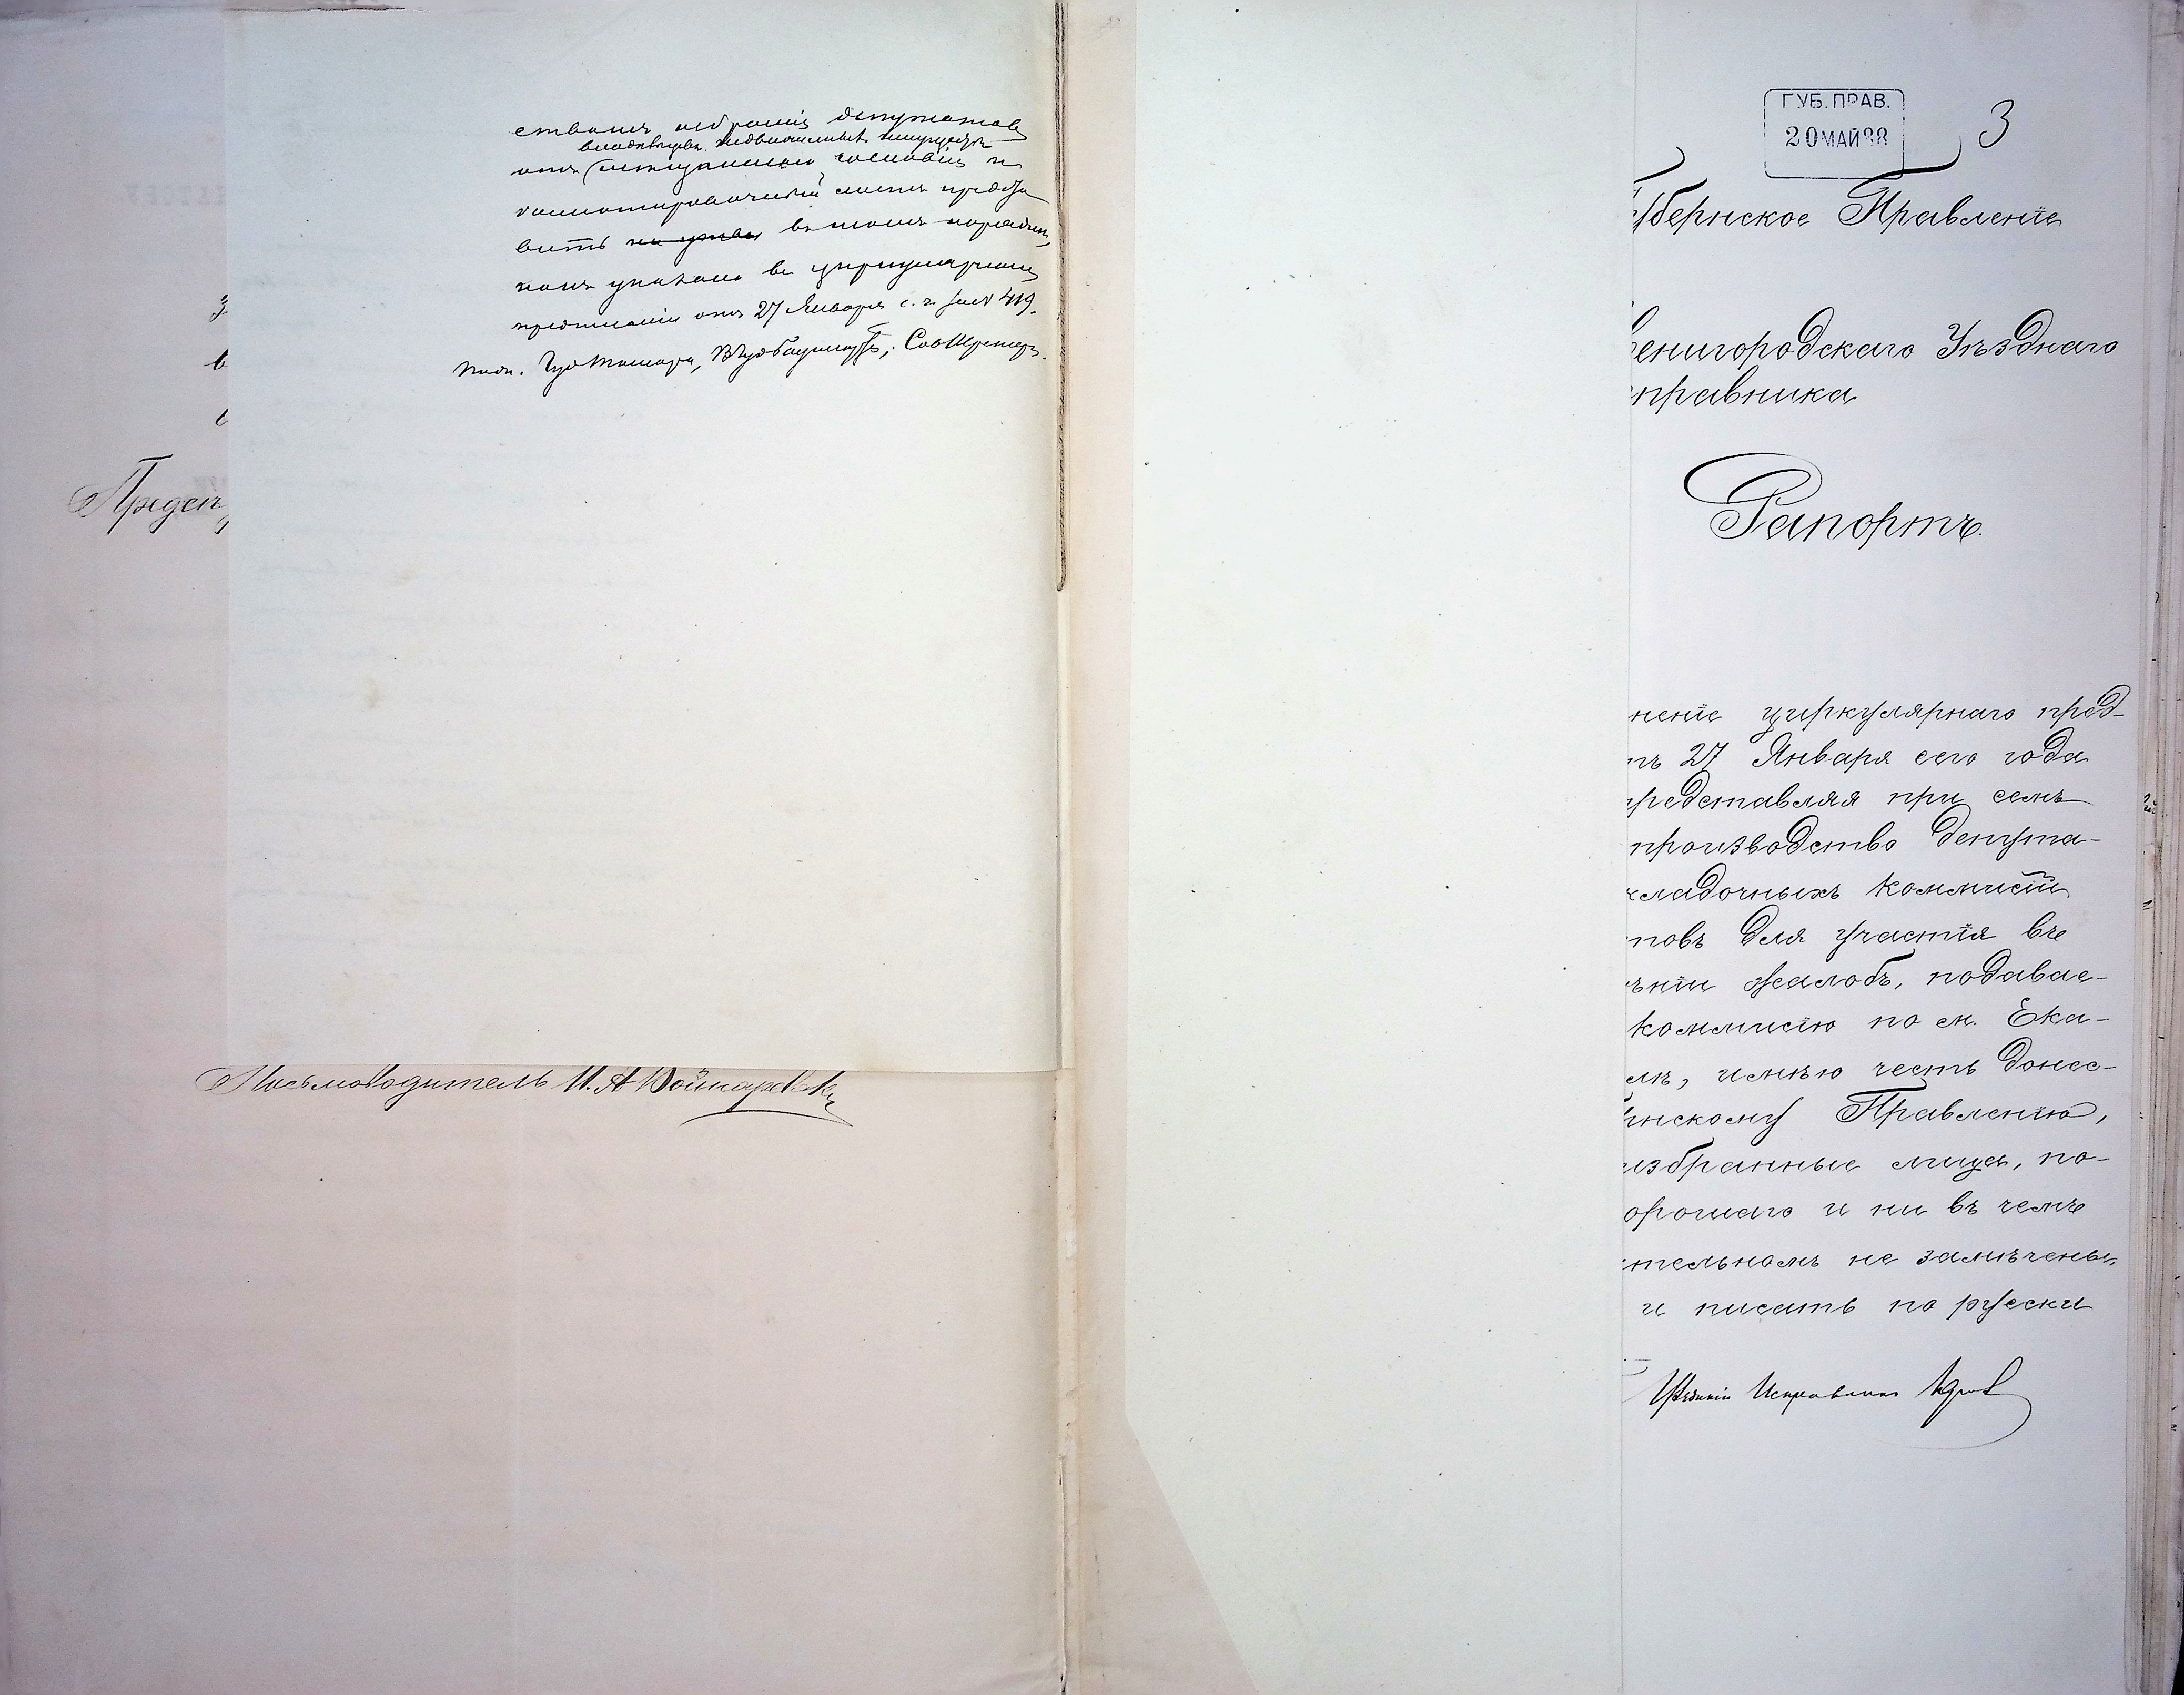 ствомъ избранія депутатовъ
владѣльцевъ недвижимыхъ имуществъ
отъ мѣщанскаго сословія и
баллотировочный листъ предста
вить въ томъ порядкѣ,
какъ указано въ циркулярномъ
предписаніи отъ 27 Января с. г. за № 419.
Подп.
Письмоводитель И. А.
ГУБ. ПРАВ.
20 МАЙ 88
3
убернское Правленіе
венигородскаго Уѣзднаго
справника
Рапортъ.
неніе циркулярнаго пред-
тъ 27 Января сего года
редставляя при семъ
производство депута-
кладочныхъ коммисій
товъ для участія въ
ѣніи жалобъ, подавае-
коммисію по м. Ека-
лю, имѣю честь донес-
рнскому Правленію,
избранные лица, по-
орошаго и ни въ чемъ
ительномъ не замѣчены,
и писать по русски
Уѣздный Исправникъ